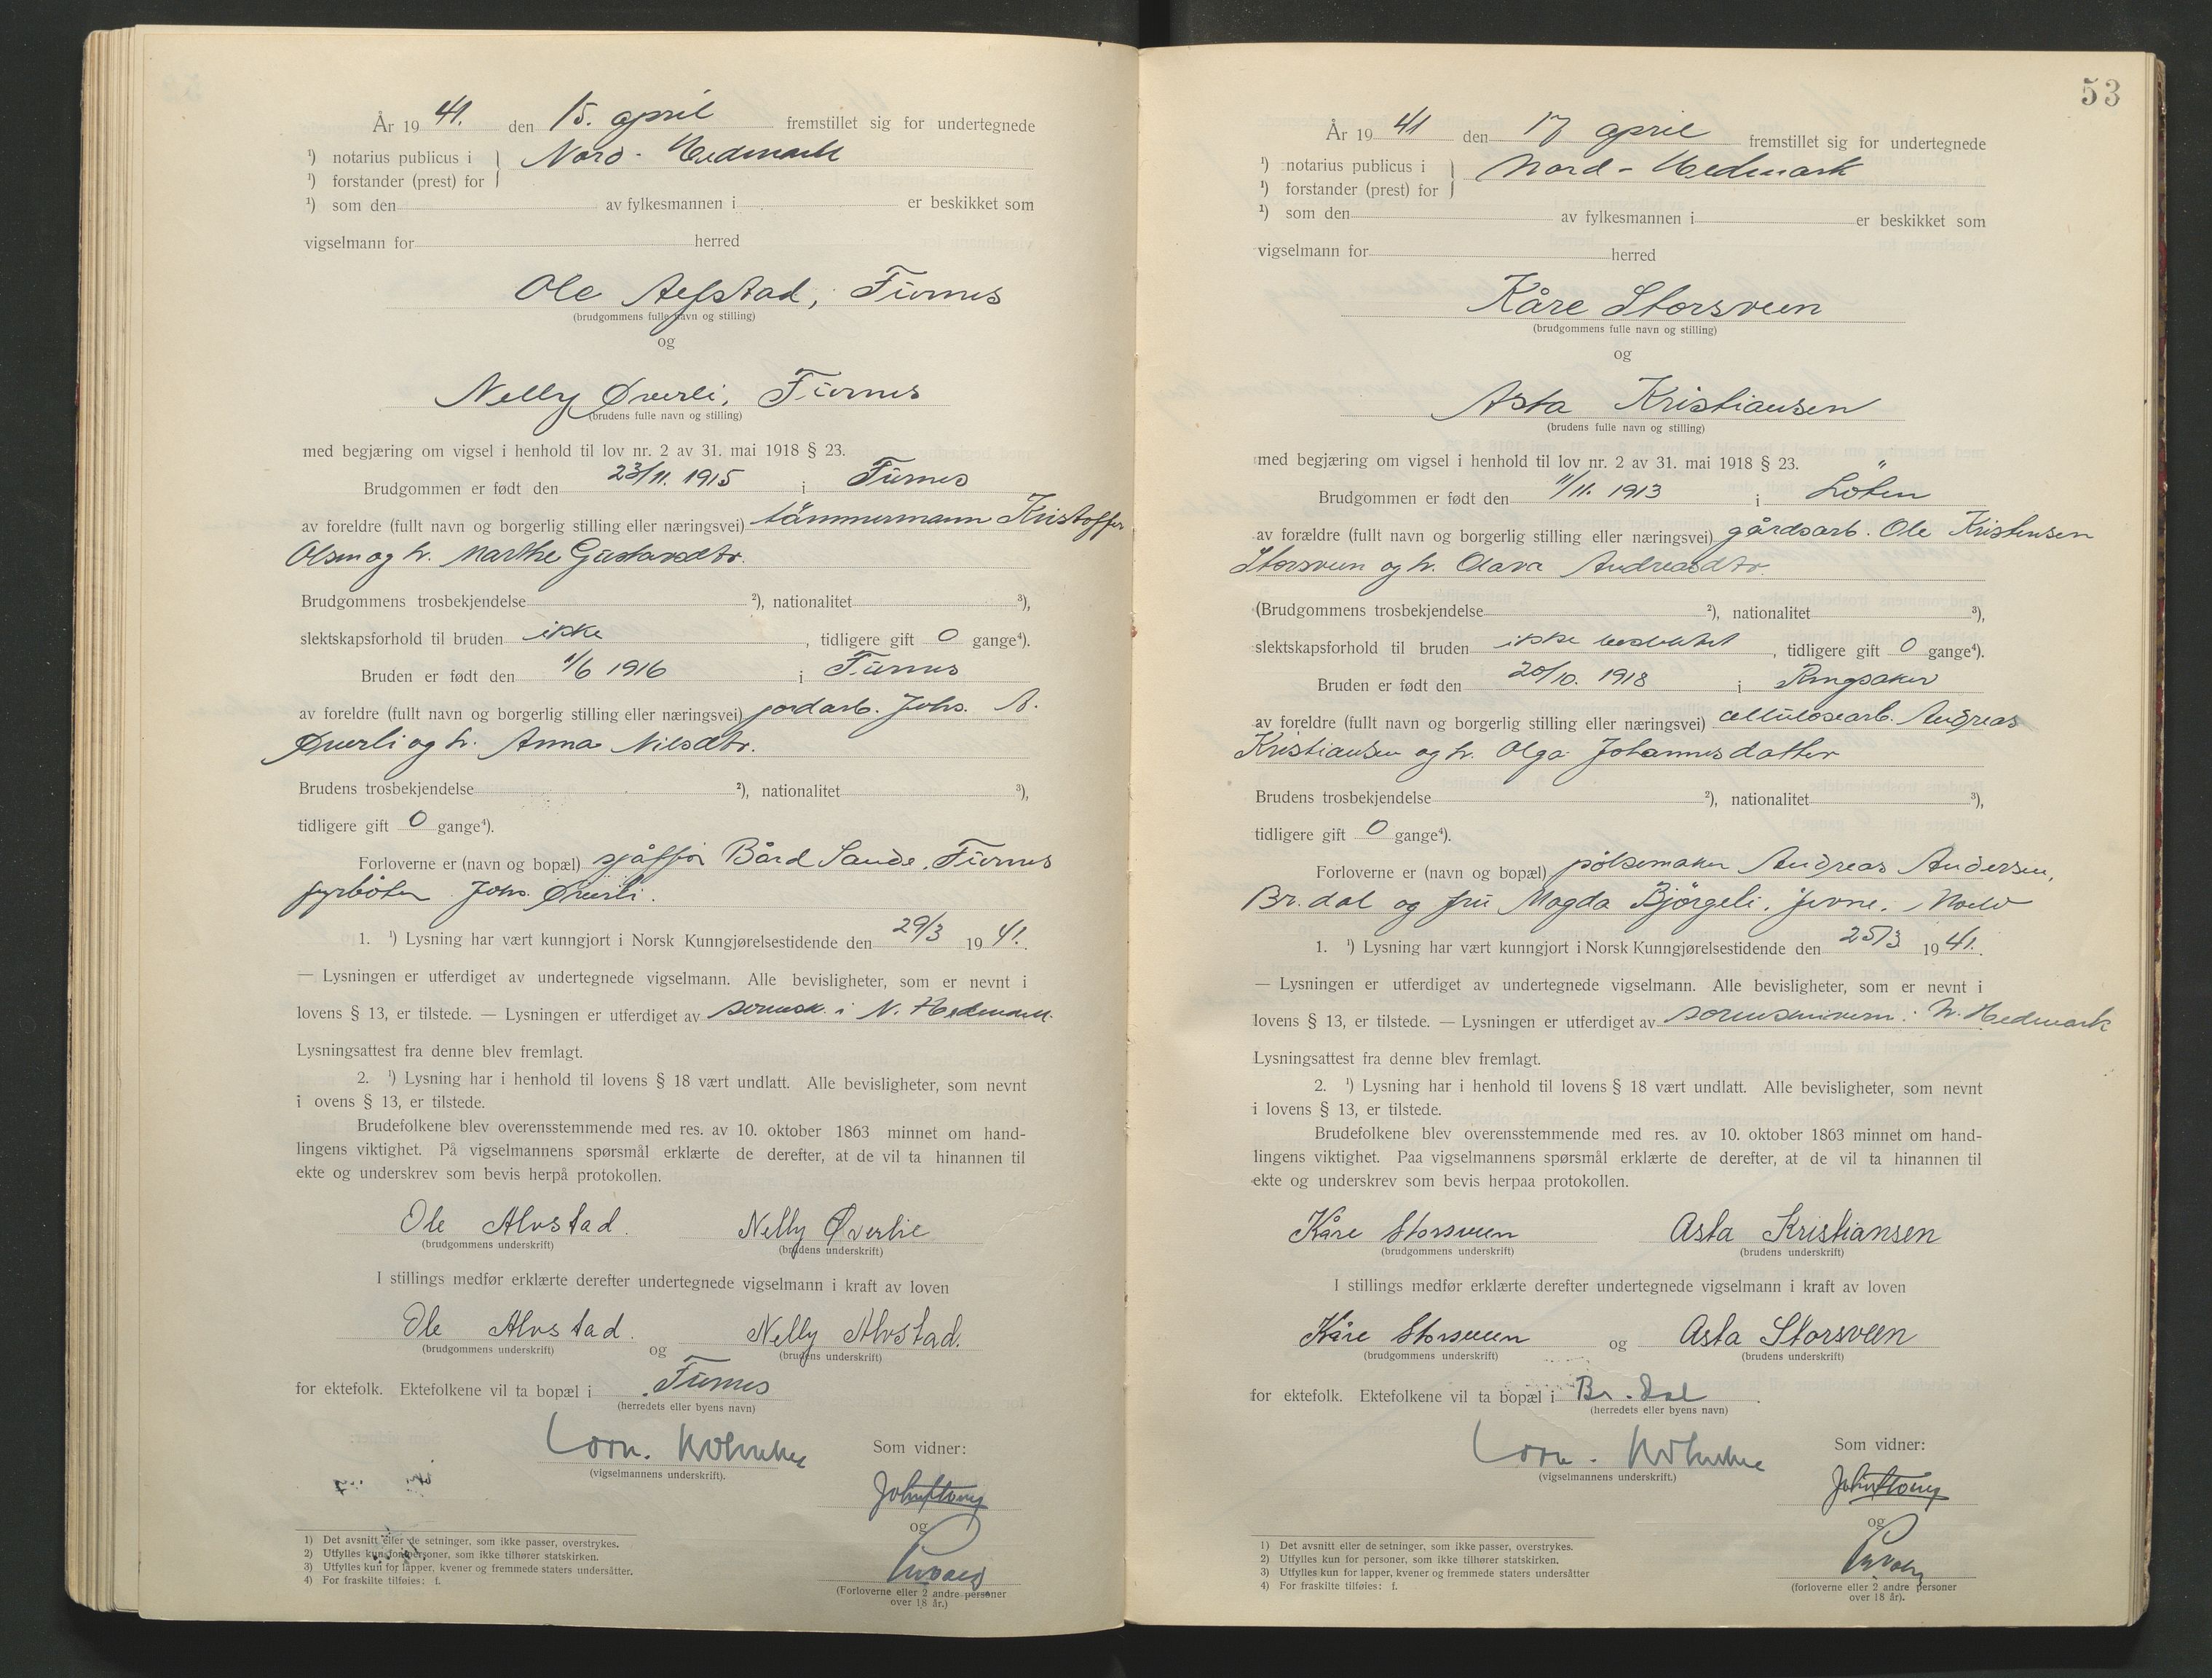 År 1941. den 15. april fremstillet sig for undertegnede
¹) notarius publicus i } Nord-Hedmark
¹) forstander (prest) for
¹) som den av fylkesmannen i er beskikket som
vigselmann for herred
Ole Alfstad, Furnes
(brudgommens fulle navn og stilling)
og
Nelly Øverli, Furnes
(brudens fulle navn og stilling)
med begjæring om vigsel i henhold til lov nr. 2 av 31. mai 1918 § 23.
Brudgommen er født den 23/11. 1915 i Furnes
av foreldre (fullt navn og borgerlig stilling eller næringsvei) tømmermann Kristoffer
Olsen og h. Marthe Gustavsdtr.
Brudgommens trosbekjendelse ²), nationalitet ³),
slektskapsforhold til bruden ikke, tidligere gift 0 gange⁴).
Bruden er født den 1/6 1916 i Furnes
av foreldre (fullt navn og borgerlig stilling eller næringsvei) jordarb. Johs. A.
Øverli og h. Anna Nilsdtr.
Brudens trosbekjendelse ²), nationalitet ³),
tidligere gift 0 gange⁴).
Forloverne er (navn og bopæl) sjåffør Bård Sande, Furnes
fyrbøter Johs. Øverli.
1. ¹) Lysning har vært kunngjort i Norsk Kunngjørelsestidende den 29/3 1941.
— Lysningen er utferdiget av undertegnede vigselmann. Alle bevisligheter, som er nevnt i
lovens § 13, er tilstede. — Lysningen er utferdiget av sorensk. i N. Hedmark.
Lysningsattest fra denne blev fremlagt.
2. ¹) Lysning har i henhold til lovens § 18 vært undlatt. Alle bevisligheter, som nevnt
i ovens § 13, er tilstede.
Brudefolkene blev overensstemmende med res. av 10. oktober 1863 minnet om hand-
lingens viktighet. På vigselmannens spørsmål erklærte de derefter, at de vil ta hinannen til
ekte og underskrev som bevis herpå protokollen.
Ole Alvstad. Nelly Øverlie
(brudgommens underskrift) (brudens underskrift)
I stillings medfør erklærte derefter undertegnede vigselmann i kraft av loven
Ole Alvstad. og Nelly Alvstad.
(brudgommens underskrift) (brudens underskrift)
for ektefolk. Ektefolkene vil ta bopæl i Furnes
(herredets eller byens navn)
(vigselmannens underskrift).
Som vidner:
og
(Forloverne eller 2 andre personer
over 18 år.)
1) Det avsnitt eller de setninger, som ikke passer, overstrykes.
2) Utfylles kun for personer, som ikke tilhører statskirken.
3) Utfylles kun for lapper, kvener og fremmede staters undersåtter.
4) For fraskilte tilføies: f.
53
År 1941 den 17 april fremstillet sig for undertegnede
¹) notarius publicus i } Nord-Hedmark
¹) forstander (prest) for
¹) som den av fylkesmannen i er beskikket som
vigselmann for herred
Kåre Storsveen
(brudgommens fulle navn og stilling)
og
Asta Kristiansen
(brudens fulle navn og stilling)
med begjæring om vigsel i henhold til lov nr. 2 av 31. mai 1918 § 23.
Brudgommen er født den 11/11. 1913 i Löten
av forældre (fullt navn og borgerlig stilling eller næringsvei) gårdsarb. Ole Kristensen
Storsveen og h. Olava Andreasdtr.
(Brudgommens trosbekjendelse ²), nationalitet ³),
slektskapsforhold til bruden ikke beslektet, tidligere gift 0 gange⁴).
Bruden er født den 20/10. 1918 i Ringsaker
av foreldre (fullt navn og borgerlig stilling eller næringsvei) cellulosearb. Andreas
Kristiansen og h. Olga Johannesdatter
Brudens trosbekjendelse ²), nationalitet ³),
tidligere gift 0 gange⁴).
Forloverne er (navn og bopæl) pølsemaker Andreas Andersen,
Br.dal og fru Magda Bjørgeli, Jevne, Moelv
1. ¹) Lysning har vært kunngjort i Norsk Kunngjørelsestidende den 25/3 1941.
— Lysningen er utferdiget av undertegnede vigselmann. Alle bevisligheter, som er nevnt i
lovens § 13, er tilstede. — Lysningen er utferdiget av sorenskriveren i N. Hedmark
Lysningsattest fra denne blev fremlagt.
2. ¹) Lysning har i henhold til lovens § 18 vært undlatt. Alle bevisligheter, som nevnt
i lovens § 13, er tilstede.
Brudefolkene blev overensstemmende med res. av 10. oktober 1863 minnet om hand-
lingens viktighet. Paa vigselmannens spørsmål erklærte de derefter, at de vil ta hinannen til
ekte og underskrev som bevis herpaa protokollen.
Kåre Storsveen Asta Kristiansen
(brudgommens underskrift) (brudens underskrift)
I stillings medfør erklærte derefter undertegnede vigselmann i kraft av loven
Kåre Storsveen og Asta Storsveen
(brudgommens underskrift) (brudens underskrift)
for ektefolk. Ektefolkene vil ta bopæl i Br.dal.
(herredets eller byens navn)
(vigselmannens underskrift.)
Som vidner:
og
(forloverne eller 2 andre personer
over 18 år).
1) Det avsnitt eller de setninger, som ikke passer, overstrykes.
2) Utfylles kun for personer, som ikke tilhører statskirken.
3) Utfylles kun for lapper, kvener og fremmede staters undersåtter
4) For fraskilte tilføies: f.